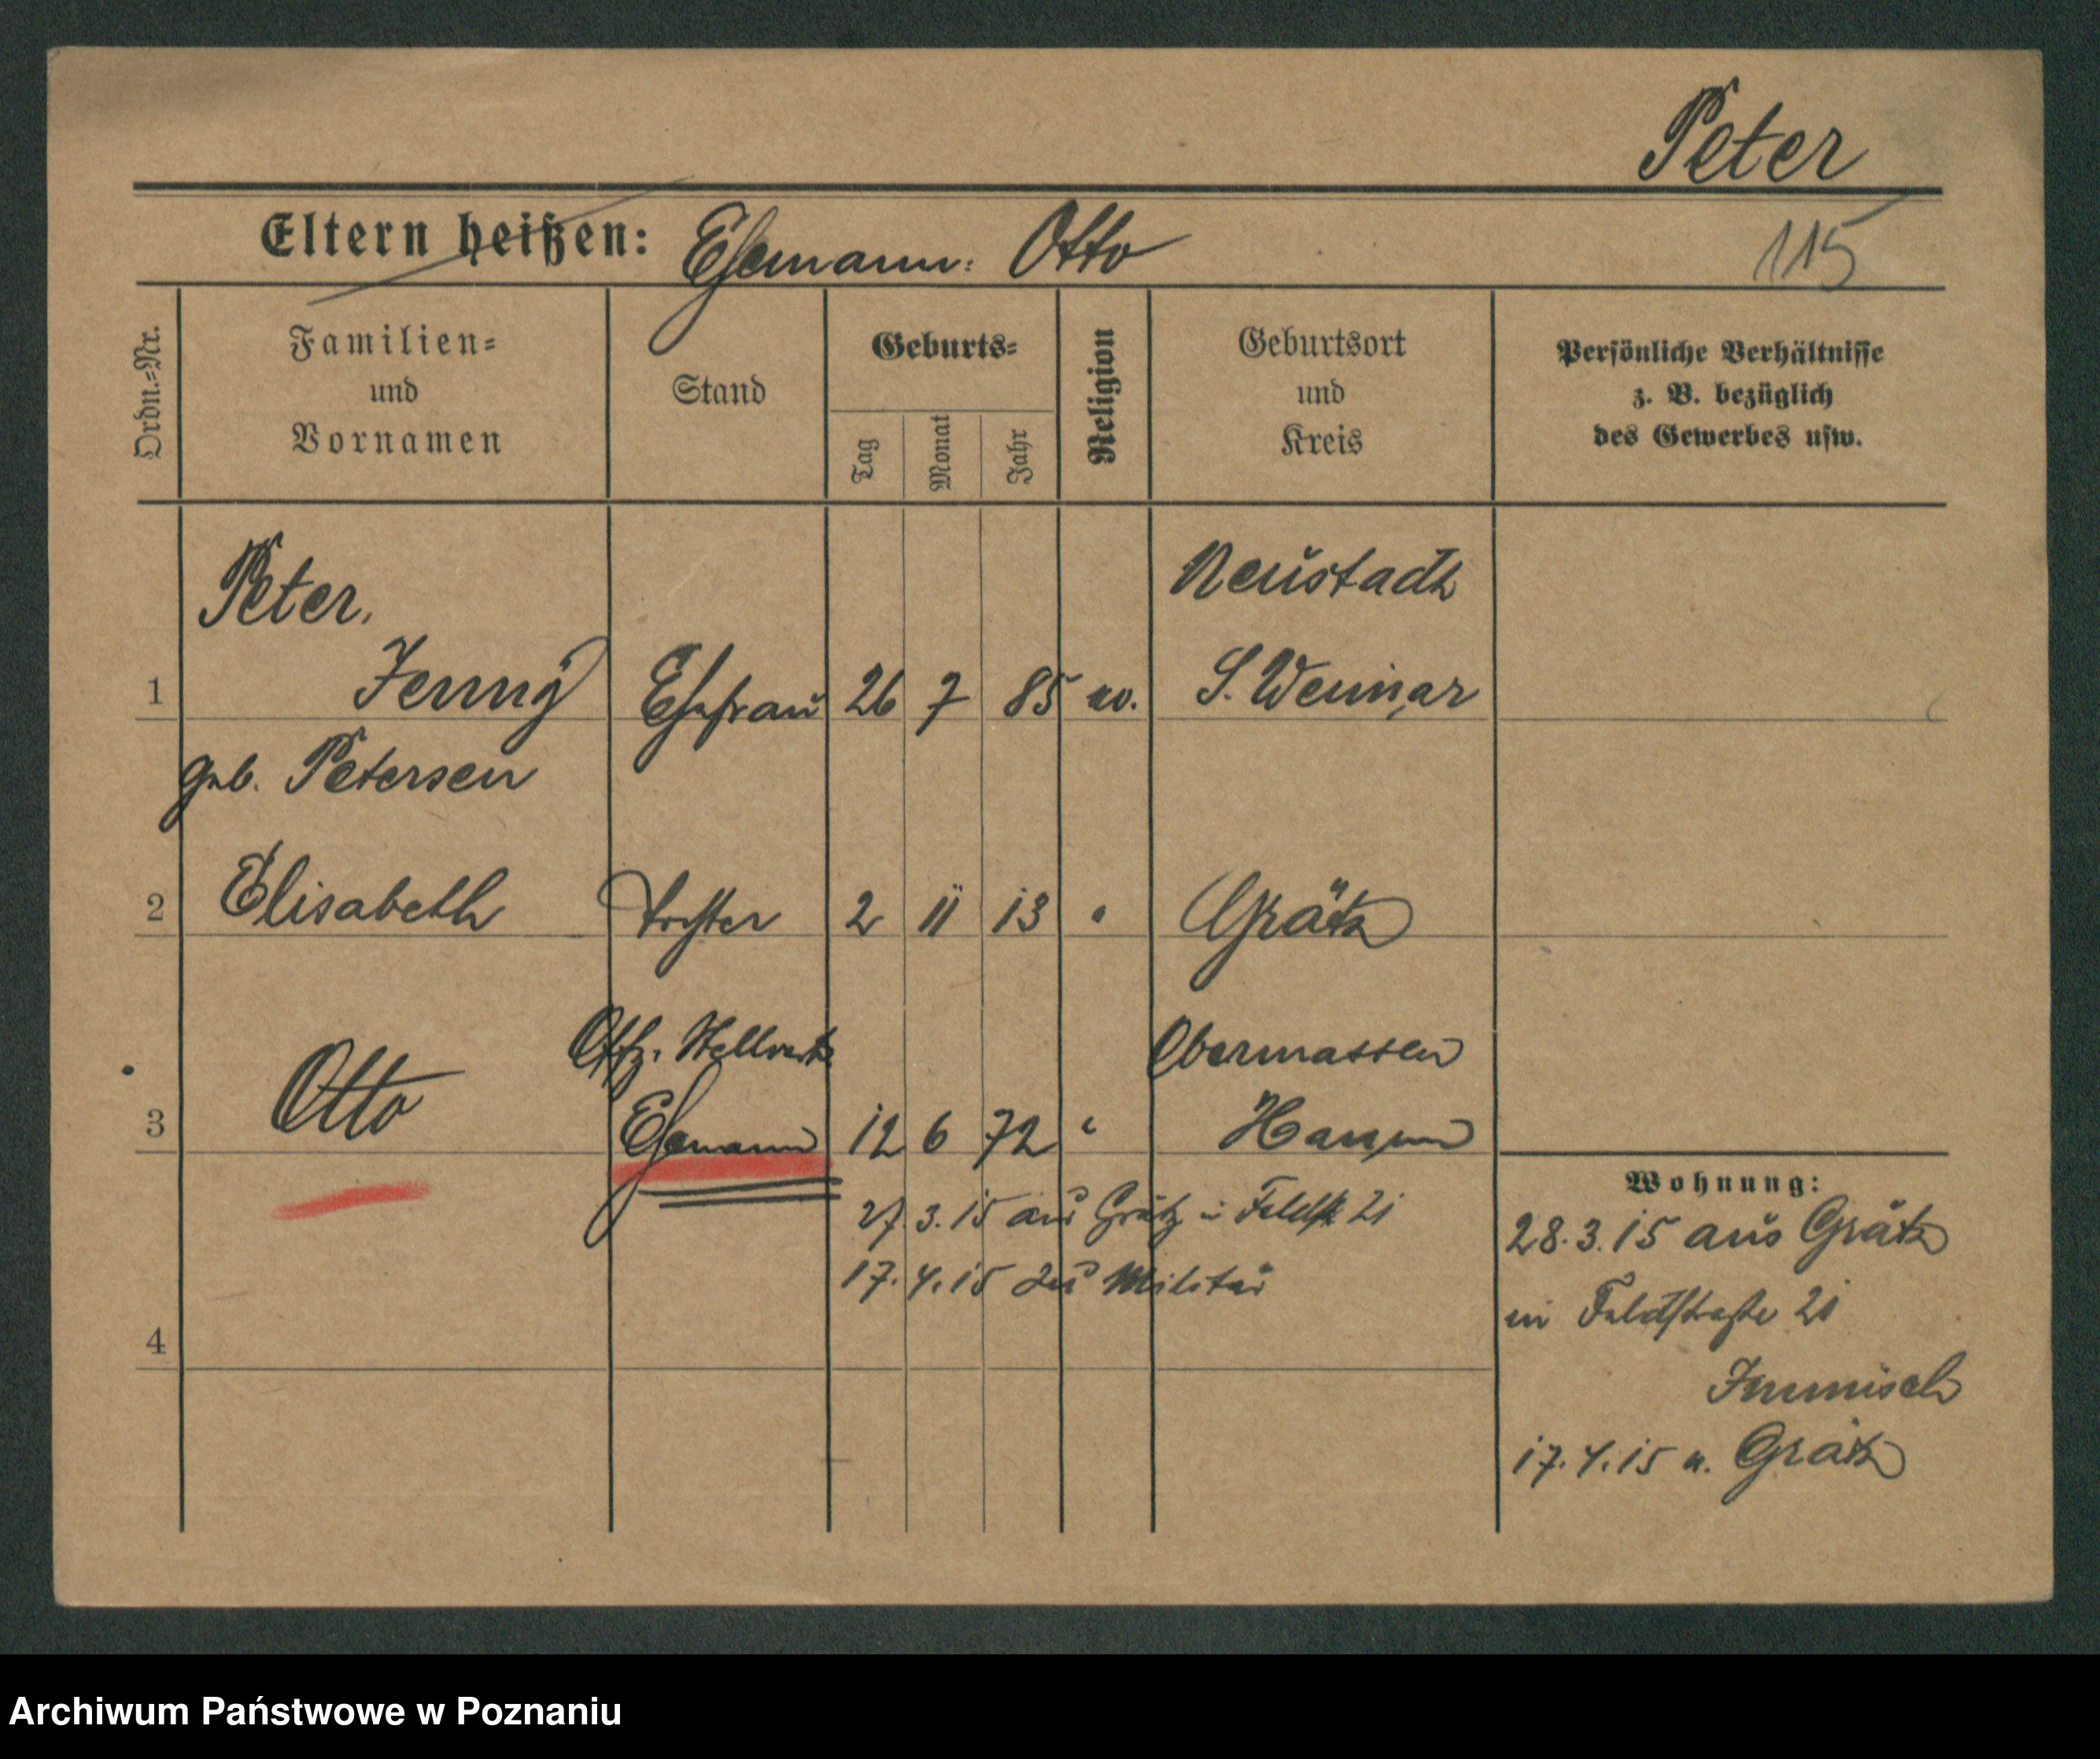 Peter
Eltern heißen: Ehemann: Otto
115
Ordn.=Nr.
Familien=
und
Vornamen
Stand
Geburts=
Tag
Monat
Jahr
Religion
Geburtsort
und
Kreis
Persönliche Verhältnisse
z. B. bezüglich
des Gewerbes usw.
Peter, Neustadt
1 Jenny Ehefrau 26 7 85 ev. S. Weimar
geb. Petersen
2 Elisabeth Tochter 2 11 13 " Grätz
Offz. Stellvertr. Obermassen
3 Otto Ehemann 12 6 72 "
Wohnung:
27.3.15 aus Grätz in Feldstr 21
28.3.15 aus Grätz
17.4.15 zu Militär
in Feldstraße 21
4
Immisch
17.4.15 n. Grätz
Archiwum Państwowe w Poznaniu